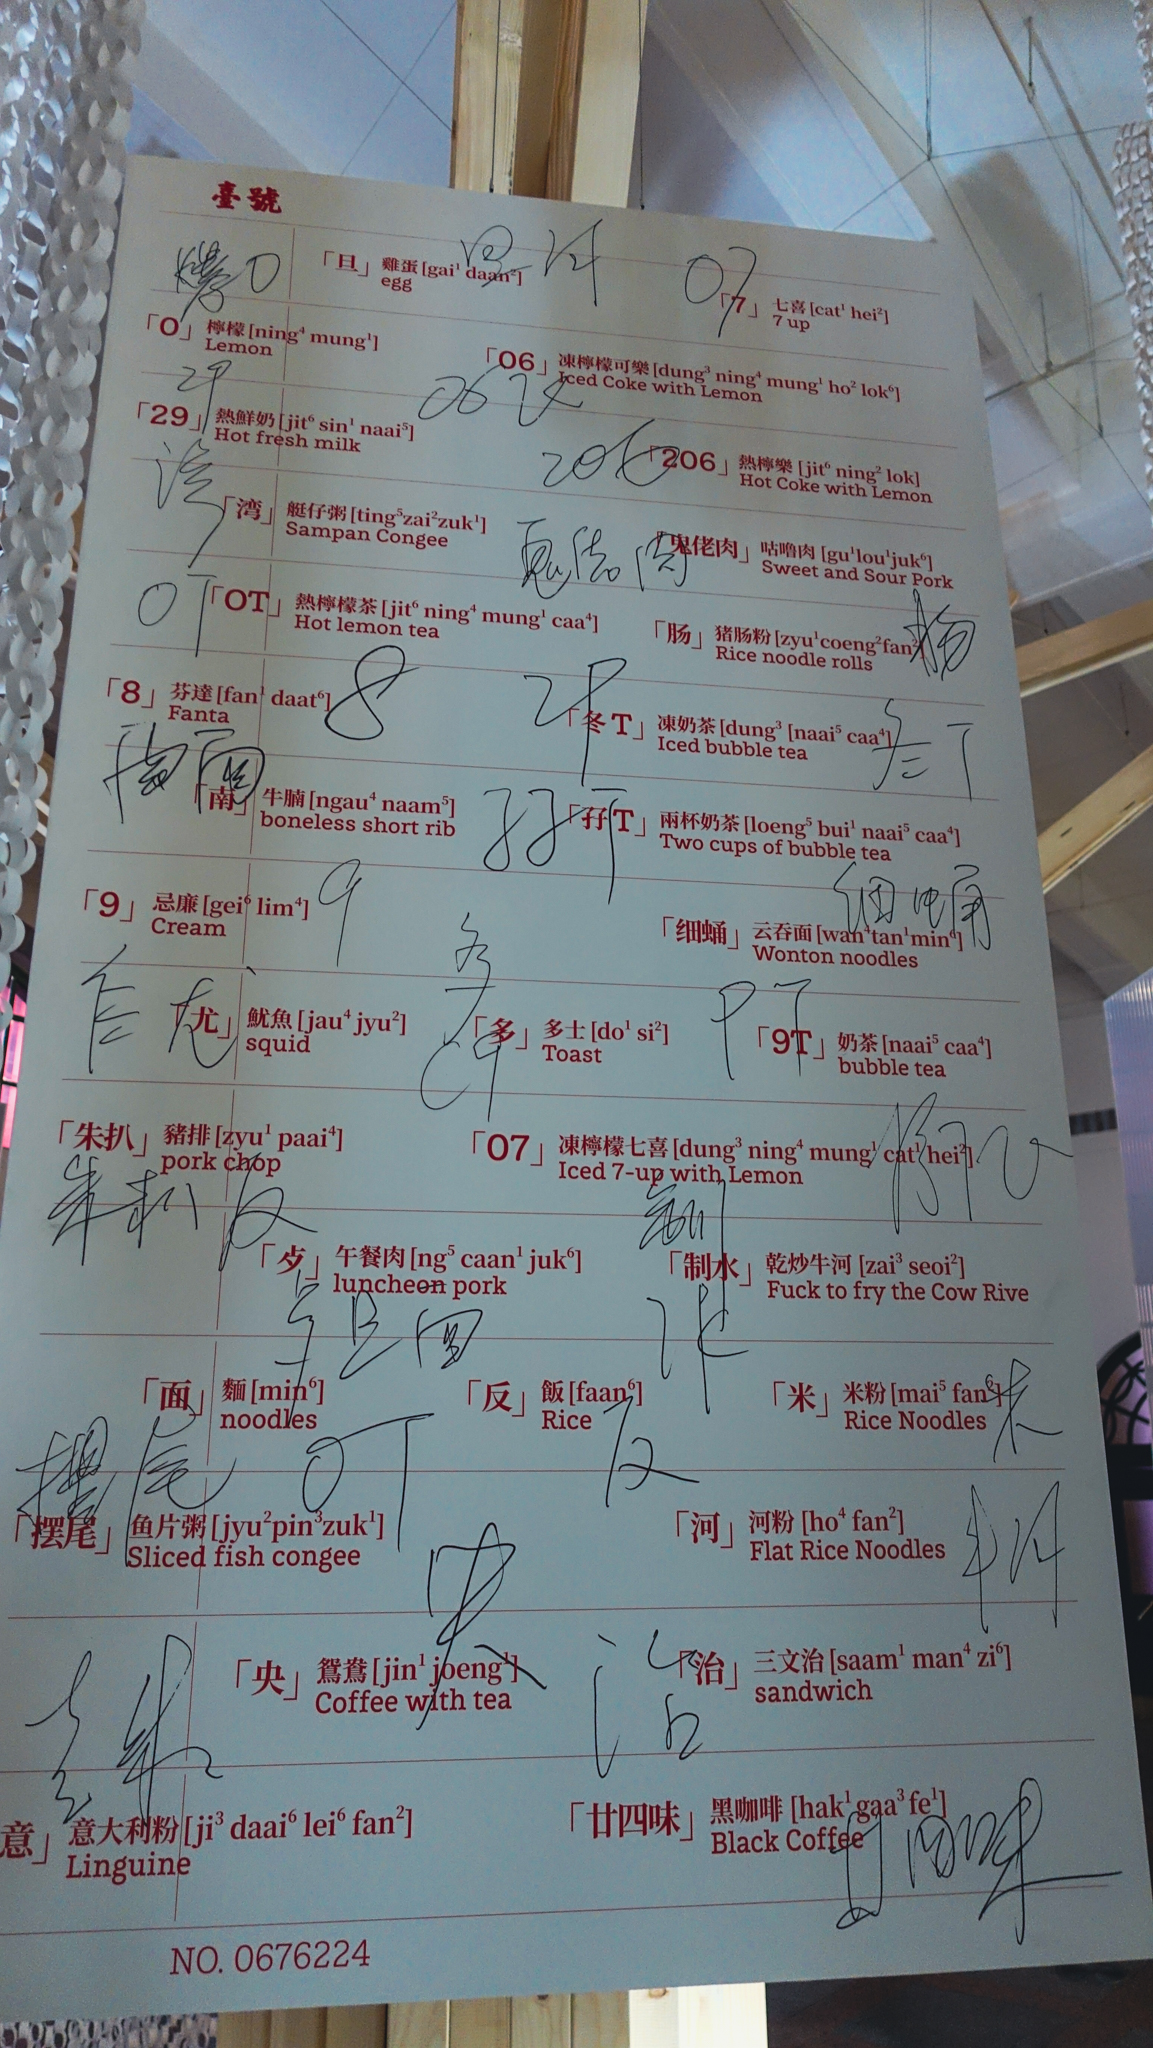 臺號
「旦」 雞蛋 [gai¹ daan²]
egg
「7」 七喜 [cat¹ hei²]
7 up
「0」 檸檬 [ning⁴ mung¹]
Lemon
「06」 凍檸檬可樂 [dung³ ning⁴ mung¹ ho² lok⁶]
Iced Coke with Lemon
「29」 熱鮮奶 [jit⁶ sin¹ naai⁵]
Hot fresh milk
「206」 熱檸樂 [jit⁶ ning² lok]
Hot Coke with Lemon
「湾」 艇仔粥 [ting⁵zai²zuk¹]
Sampan Congee
「鬼佬肉」 咕嚕肉 [gu¹lou¹juk⁶]
Sweet and Sour Pork
「OT」 熱檸檬茶 [jit⁶ ning⁴ mung¹ caa⁴]
Hot lemon tea
「肠」 猪肠粉 [zyu¹coeng²fan²]
Rice noodle rolls
「8」 芬達 [fan¹ daat⁶]
Fanta
「冬T」 凍奶茶 [dung³ [naai⁵ caa⁴]
Iced bubble tea
「南」 牛腩 [ngau⁴ naam⁵]
boneless short rib
「孖T」 兩杯奶茶 [loeng⁵ bui¹ naai⁵ caa⁴]
Two cups of bubble tea
「9」 忌廉 [gei⁶ lim⁴]
Cream
「细蛹」 云吞面 [wan⁴tan¹min⁶]
Wonton noodles
「尤」 魷魚 [jau⁴ jyu²]
squid
「多」 多士 [do¹ si²]
Toast
「9T」 奶茶 [naai⁵ caa⁴]
bubble tea
「朱扒」 豬排 [zyu¹ paai⁴]
pork chop
「07」 凍檸檬七喜 [dung³ ning⁴ mung¹ cat¹ hei²]
Iced 7-up with Lemon
「歺」 午餐肉 [ng⁵ caan¹ juk⁶]
luncheon pork
「制水」 乾炒牛河 [zai³ seoi²]
Fuck to fry the Cow Rive
「面」 麵 [min⁶]
noodles
「反」 飯 [faan⁶]
Rice
「米」 米粉 [mai⁵ fan²]
Rice Noodles
「摆尾」 鱼片粥 [jyu²pin³zuk¹]
Sliced fish congee
「河」 河粉 [ho⁴ fan²]
Flat Rice Noodles
「央」 鴛鴦 [jin¹ joeng¹]
Coffee with tea
「治」 三文治 [saam¹ man⁴ zi⁶]
sandwich
意」 意大利粉 [ji³ daai⁶ lei⁶ fan²]
Linguine
「廿四味」 黑咖啡 [hak¹ gaa³ fe¹]
Black Coffee
NO. 0676224